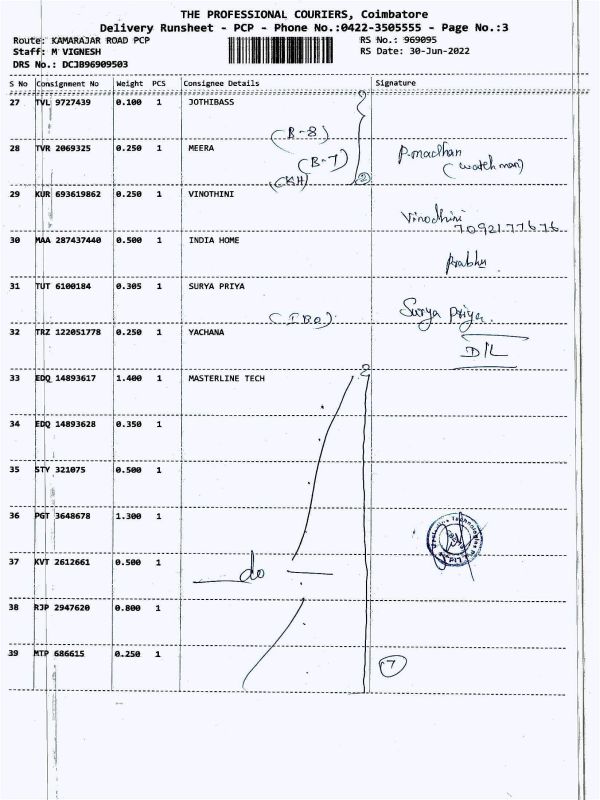 THE PROFESSIONAL COURIERS, Coimbatore
Delivery Runsheet - PCP - Phone No.:0422-3505555 - Page No.:3
Route: KAMARAJAR ROAD PCP RS No.: 969095
Staff: M VIGNESH RS Date: 30-Jun-2022
DRS No.: DCJB96909503
S No Consignment No Weight PCS Consignee Details Signature
27 TVL 9727439 0.100 1 JOTHIBASS
(B-8)
28 TVR 2069325 0.250 1 MEERA P.madhan
(B-7) (watchman)
(KH) 2
29 KUR 693619862 0.250 1 VINOTHINI
Vinodhini
7092177676
30 MAA 287437440 0.500 1 INDIA HOME
Prabhu
31 TUT 6100184 0.305 1 SURYA PRIYA
Surya Priya.
32 TRZ 122051778 0.250 1 YACHANA
D/L
33 EDQ 14893617 1.400 1 MASTERLINE TECH
34 EDQ 14893628 0.350 1
35 STV 321075 0.500 1
36 PGT 3648678 1.300 1
37 KVT 2612661 0.500 1
do
38 RJP 2947620 0.800 1
39 MTP 686615 0.250 1
7